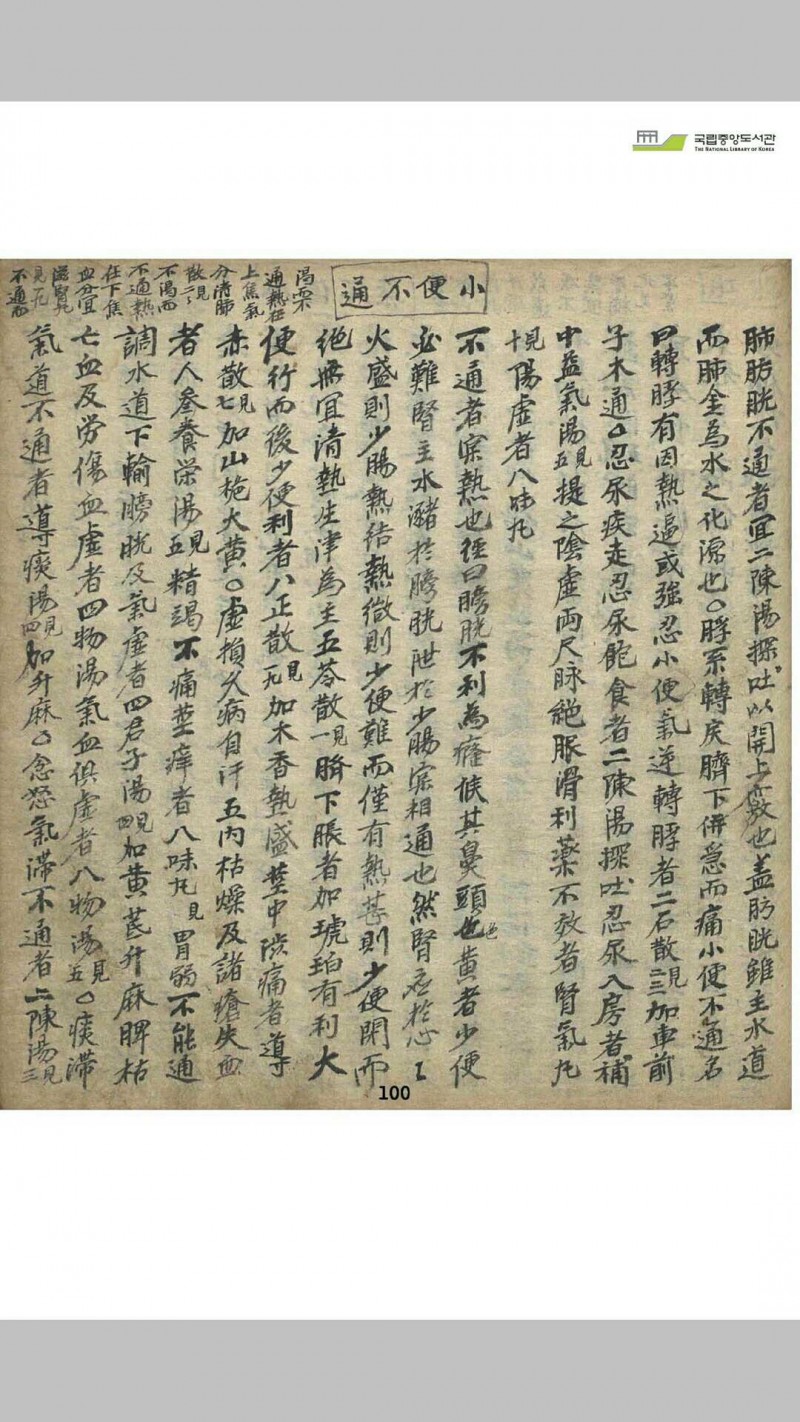 국립중앙도서관
THE NATIONAL LIBRARY OF KOREA
肺肪胱不通者冝二陳湯探吐以開上竅也盖肪胱雖主水道
而肺金為水之化源也○脬系轉戾臍下併急而痛小便不通名
曰轉脬有因熱逼或強忍小便氣逆轉脬者二石散見三加車前
子木通○忍尿疾走忍尿飽食者二陳湯探吐忍尿入房者補
中益氣湯見五提之陰虛両尺脉絶服滑利藥不效者腎氣丸
見十陽虛者八味丸
小便不通
不通者宲熱也徑曰膀胱不利為癃候其鼻頭色黄者少便
必難腎主水瀦於膀胱泄於少腸宲相通也然腎应於心
火盛則少腸熱结熱微則少便難而僅有熱甚則少便閉而
绝無冝清熱生津為主五苓散見一臍下脹者加琥珀有利大
便行而後少便利者八正散見九加木香熱盛莖中澁痛者導
赤散見七加山梔大黄○虛損久病自汗五内枯燥及諸瘡失血
者人參養栄湯見五精竭不痛莖痒者八味丸見胃弱不能通
調水道下輸膀胱及氣虛者四君子湯見四加黄芪升麻脾枯
七血及労傷血虛者四物湯氣血俱虛者八物湯見五○痰滞
氣道不通者導痰湯見四加升麻○忿怒氣滞不通者二陳湯見三
渴而不
通熱在
上焦氣
分清肺
散見二
不渴而
不通熱
在下焦
血分冝
滋腎丸
見九
不通而
100